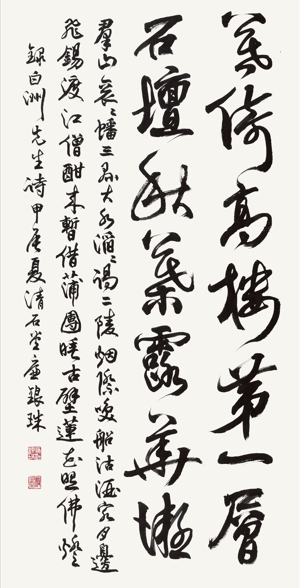 倚高樓第一層
石壇秋葉露華凝
羣山袞〻蟠三縣大水滔〻謁二陵烟際喚船沽酒客月邊
飛錫渡江僧酣來暫借蒲團睡古壁蓮花照佛燈
錄白洲先生詩甲辰夏清石堂銀珠